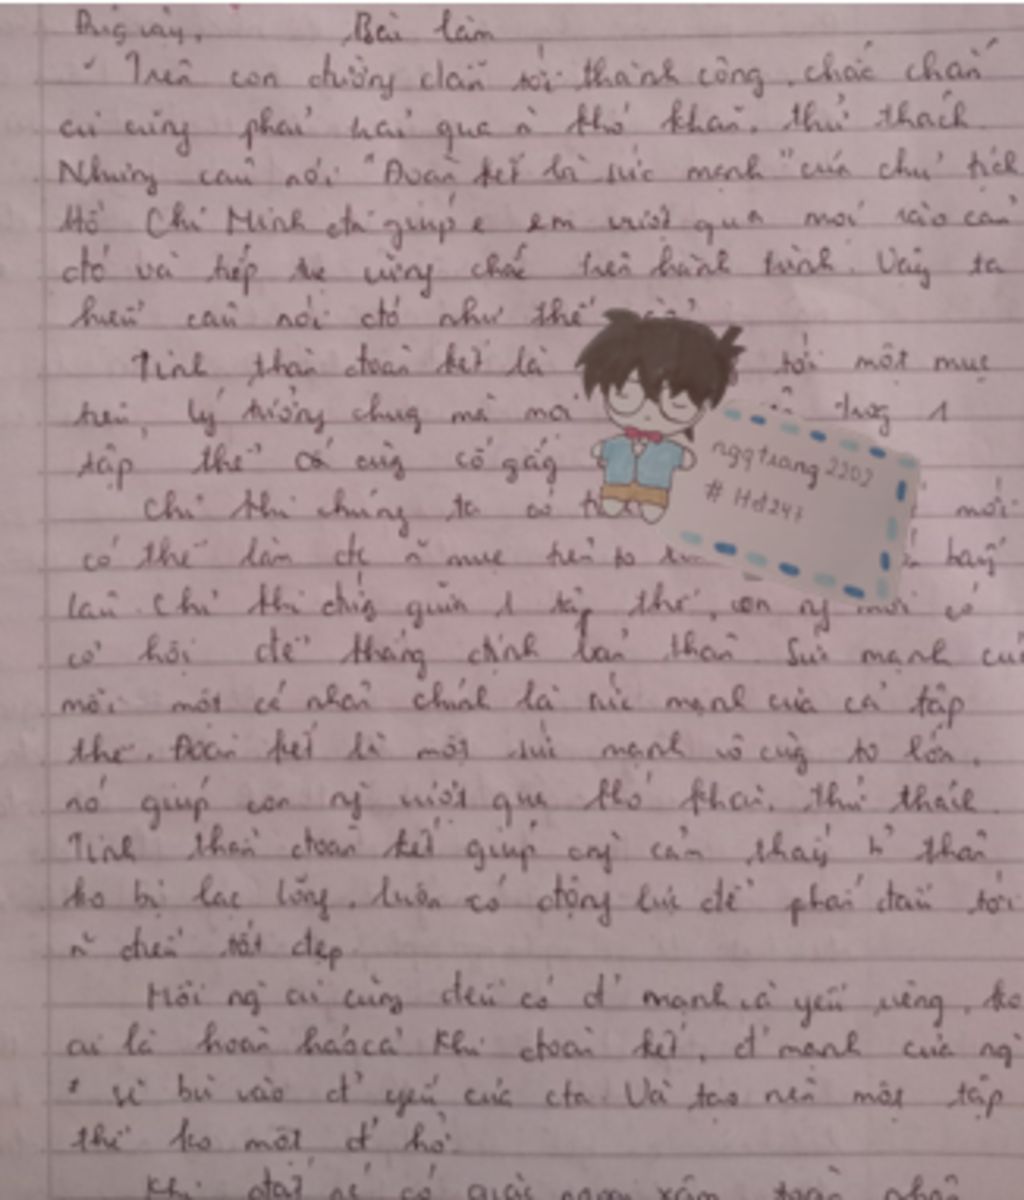 Bài làm
Trên con đường dẫn tới thành công, chắc chắn
ai cũng phải trải qua n~ khó khăn, thử thách
Nhưng câu nói "Đoàn kết là sức mạnh" của chủ tịch
Hồ Chí Minh đã giúp em vượt qua mọi rào cản
đó và tiếp vững chắc trên hành trình. Vậy ta
hiểu câu nói đó như thế
Tinh thần đoàn kết là tới một mục
tiêu, lý tưởng chug mà mọi trog 1
tập thể cùg cố gắg
nqqtrang2207
# Hd247
Chỉ khi chúng ta có mới
có thể làm đc n~ mục tiêu to
lâu. Chỉ khi đứg giữa 1 tập thể, con ng` mới có
cơ hội để khẳng định bản thân. Sức mạnh củ
mỗi một cá nhân chính là sức mạnh của cả tập
thể. Đoàn kết là một sức mạnh vô cùg to lớn.
nó giúp con ng` vượt qua khó khăn, thử thách
Tinh thần đoàn kết giúp cảm thấy thân
ko bị lạc lõng, luôn có động lực để phấn đấu tới
n~ điều tốt đẹp
Mỗi ng` ai cũng đều có đ' mạnh và yếu riêng, ko
ai là hoàn hảo cả. Khi đoàn kết, đ' mạnh của ng`
sẽ bù vào đ' yếu của cta. Và tạo nên một tập
thể ko một đ' hở.
Khi đất có giặc ngoại xâm, toàn